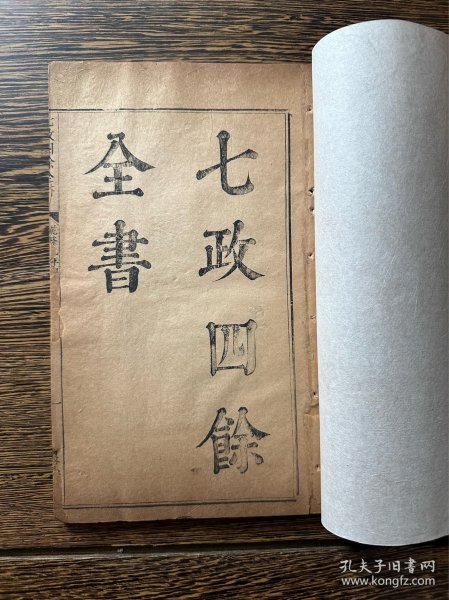 七政四餘
全書
孔夫子旧书网
www.kongfz.com